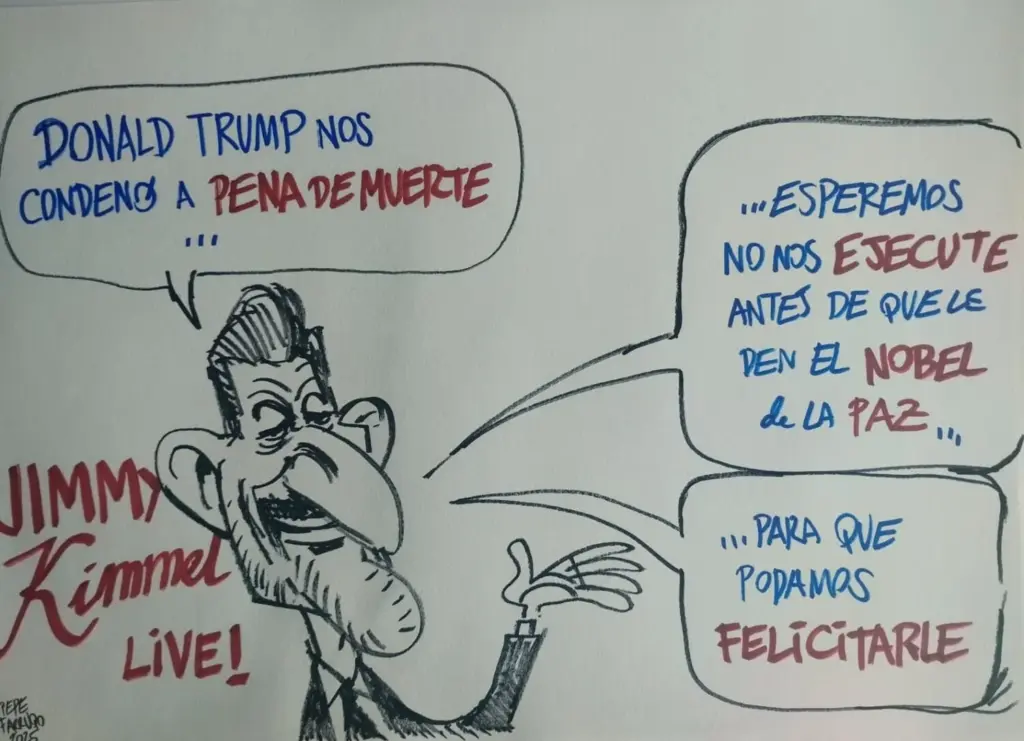 DONALD TRUMP NOS
CONDENÓ A PENA DE MUERTE
...
...ESPEREMOS
NO NOS EJECUTE
ANTES DE QUE LE
DEN EL NOBEL
de LA PAZ...
...PARA QUE
PODAMOS
FELICITARLE
JIMMY
Kimmel
LIVE!
PEPE
FARRUQO
2025